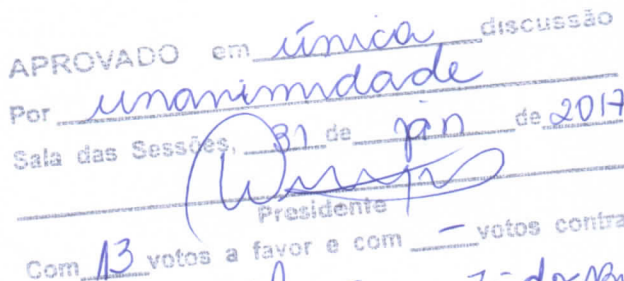 APROVADO em única discussão
Por unanimidade
Sala das Sessões, 31 de jan de 2017
Presidente
Com 13 votos a favor e com - votos contra